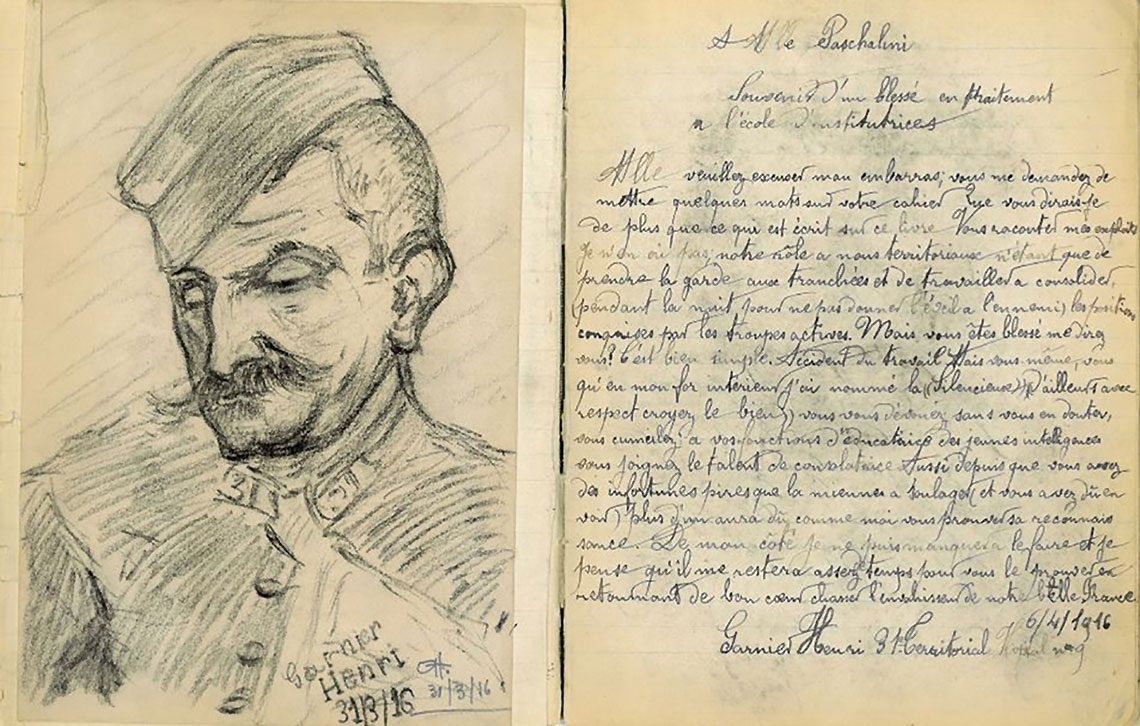 31
31
Garnier
Henri
31/3/16
31/3/16
A Mlle Paschalini
Souvenir d'un blessé en traitement
a l'école d'institutrices
Mlle veuillez excuser mon embarras; vous me demandez de
mettre quelques mots sur votre cahier Que vous dirais-je
de plus que ce qui est écrit sur ce livre Vous raconter mes exploits
Je n'en ai pas, notre rôle a nous territoriaux n'étant que de
prendre la garde aux tranchées et de travailler a consolider,
(pendant la nuit pour ne pas donner l'éveil a l'ennemi) les positions
conquises par les troupes actives. Mais vous êtes blessé me direz
vous? C'est bien simple. Accident du travail Mais vous-même, vous
qu'en mon for intérieur j'ai nommé la ((Silencieuse)) (D'ailleurs avec
respect croyez le bien) vous vous dévouez sans vous en douter,
vous cumulez; a vos fonctions d'éducatrice des jeunes intelligences
vous joignez le talent de consolatrice Aussi depuis que vous avez
des infortunes pires que la miennes a soulager (et vous avez dû en
voir) plus d'un aura dû comme moi vous prouver sa reconnais
sance. De mon coté je ne puis manquer a le faire et je
pense qu'il me restera assez temps pour vous le prouver en
retournant de bon cœur chasser l'envahisseur de notre belle France
6/4/1916
Garnier Henri 31e Territorial n°9